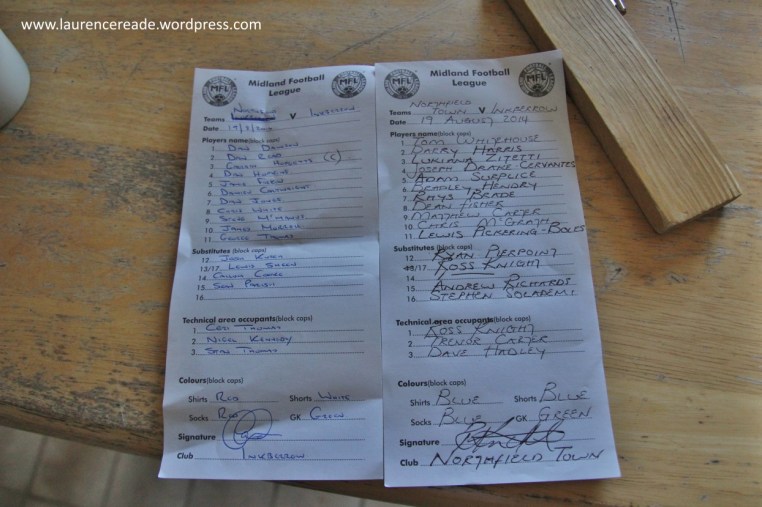 www.laurencereade.wordpress.com
MFL
Midland Football
League
MFL
Teams V INKBERROW
Date
Players name(block caps)
1. DAN DAWSON
2. DAN READ
3. (C)
4. DAN HOPKINS
5. JAMIE
6. DAMIEN CARTWRIGHT
7. DAN JONES
8. CHRIS WHITE
9. STEVE
10. JAMES
11. GEORGE THOMAS
Substitutes (block caps)
12 JOSH
13/17 LEWIS GREEN
14 CALLUM
15 SEAN PARISH
16
Technical area occupants(block caps)
1. CERI THOMAS
2. NIGEL KENNEDY
3. STAN THOMAS
Colours(block caps)
Shirts RED Shorts WHITE
Socks RED GK GREEN
Signature
Club INKBERROW
MFL
Midland Football
League
MFL
Teams NORTHFIELD TOWN V INKBERROW
Date 19 AUGUST 2014
Players name(block caps)
1 TOM WHITEHOUSE
2 HARRIS
3 ZITETTI
4 JOSEPH DRAKE-CERVANTES
5 ADAM SURPLICE
6 BRADLEY HENDRY
7 RHYS BRADE
8 DEAN FISHER
9 MATTHEW CARTER
10 CHRIS McGRATH
11 LEWIS PICKERING-BOLES
Substitutes (block caps)
12 RYAN PIERPOINT
13/17 ROSS KNIGHT
14
15 ANDREW RICHARDS
16 STEPHEN SOLADEMI
Technical area occupants(block caps)
1. ROSS KNIGHT
2. TREVOR CARTER
3. DAVE HADLEY
Colours(block caps)
Shirts BLUE Shorts BLUE
Socks BLUE GK GREEN
Signature
Club NORTHFIELD TOWN